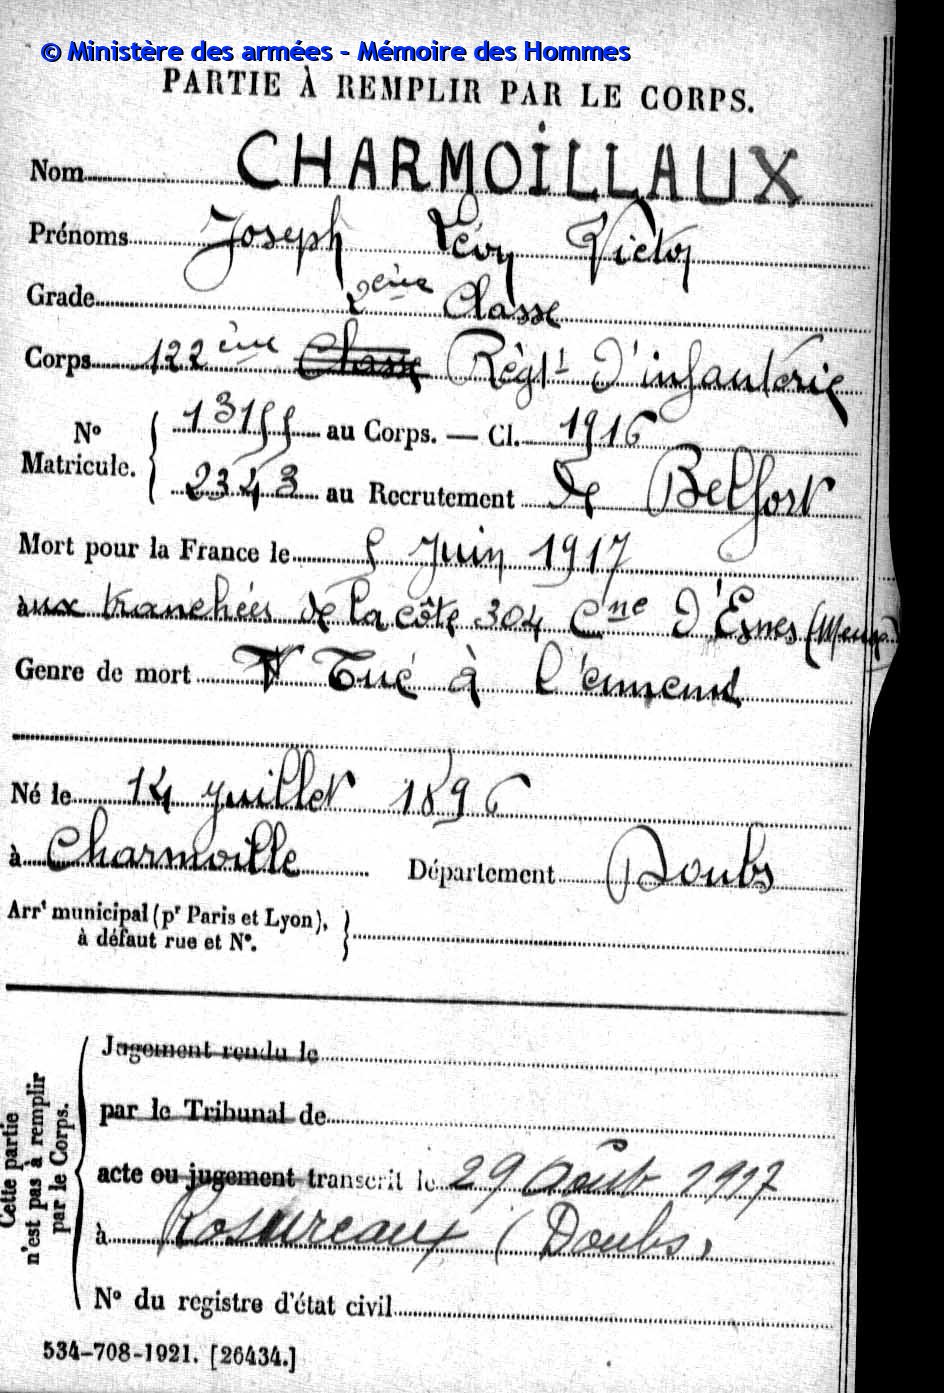 © Ministère des armées - Mémoire des Hommes
PARTIE À REMPLIR PAR LE CORPS.
Nom CHARMOILLAUX
Prénoms Joseph Léon Victor
Grade 2ème Classe
Corps 122ème Classe Règt d'infanterie
N° Matricule. { 13155 au Corps. — Cl. 1916
2343 au Recrutement de Belfort
Mort pour la France le 5 Juin 1917
aux tranchées de la côte 304 Cne d'Esnes (Meuse)
Genre de mort Tué à l'ennemi
Né le 14 juillet 1896
à Charmoille Département Doubs
Arrt municipal (pr Paris et Lyon), }
à défaut rue et N°.
Cette partie n'est pas à remplir par le Corps.
Jugement rendu le
par le Tribunal de
acte ou jugement transcrit le 29 Août 1917
à Rosureaux (Doubs)
N° du registre d'état civil
534-708-1921. [26434.]